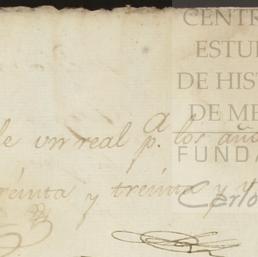 CENTR
ESTU
DE HIS
DE ME
FUND
Carlo
de vn real p.ª los año
treinta y treinta y y